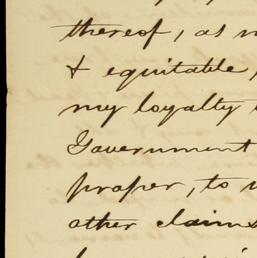 thereof, as
& equitable,
my loyalty
Government
proper, to
other claims